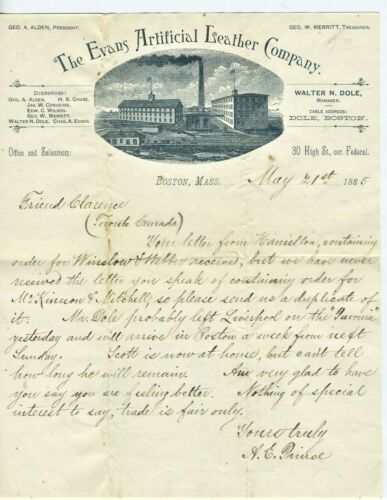 GEO. A. ALDEN, PRESIDENT.
GEO. W. MERRITT, TREASURER.
The Evans Artificial Leather Company.
DIRECTORS:
GEO. A. ALDEN. H. S. CHASE.
JAS. W. CONVERSE.
EDW. C. WILSON.
GEO. W. MERRITT.
WALTER N. DOLE. CHAS. A. EVANS.
WALTER N. DOLE,
MANAGER.
CABLE ADDRESS:
DOLE, BOSTON.
Office and Salesroom:
30 High St., cor. Federal.
BOSTON, MASS. May 21st 1885
Friend Clarence
(Toronto Canada)
Your letter from Hamilton, containing
order for Winslow & Webber received, but we have never
received the letter you speak of containing order for
McKinnon & Mitchell, so please send us a duplicate of
it. Mr. Dole probably left Liverpool on the "Pavonia"
yesterday and will arrive in Boston a week from next
Sunday. Scott is now at home, but can't tell
how long he will remain. Am very glad to have
you say you are feeling better. Nothing of special
interest to say, trade is fair only.
Yours truly
A. E. Prince